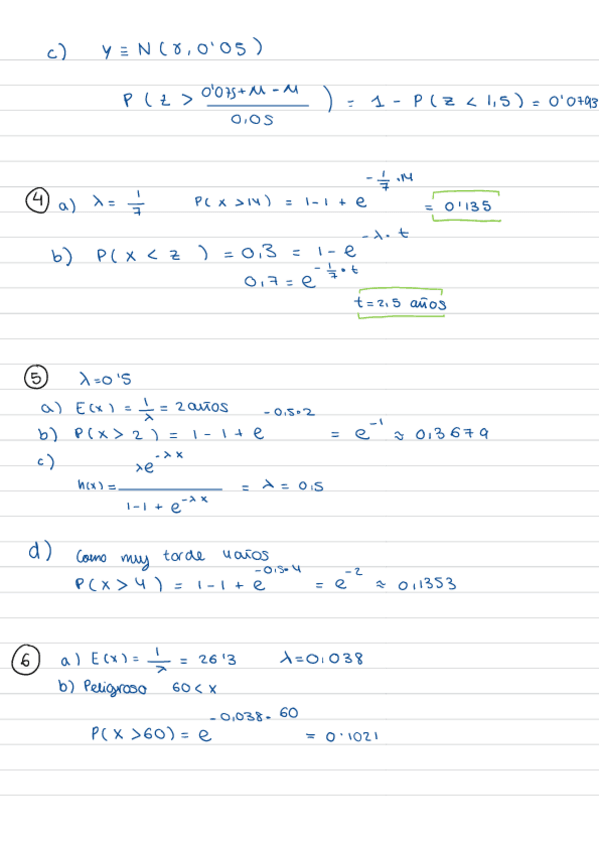 c) Y ≡ N(γ, 0'05)
P( Z > (0'075 + μ - μ) / 0,05 ) = 1 - P(Z < 1,5) = 0'0793
4 a) λ = 1/7 P(X > 14) = 1 - 1 + e^(-1/7 · 14) = 0'135
b) P(X < z) = 0,3 = 1 - e^(-λ · t)
0,7 = e^(-1/7 · t)
t = 2,5 años
5 λ = 0'5
a) E(x) = 1/λ = 2 años
b) P(X > 2) = 1 - 1 + e^(-0,5·2) = e^(-1) ≈ 0,3679
c) h(x) = λe^(-λx) / (1 - 1 + e^(-λx)) = λ = 0,5
d) Como muy tarde 4 años
P(X > 4) = 1 - 1 + e^(-0,5·4) = e^(-2) ≈ 0,1353
6 a) E(x) = 1/λ = 26'3 λ = 0,038
b) Peligroso 60 < x
P(X > 60) = e^(-0,038 · 60) = 0.1021